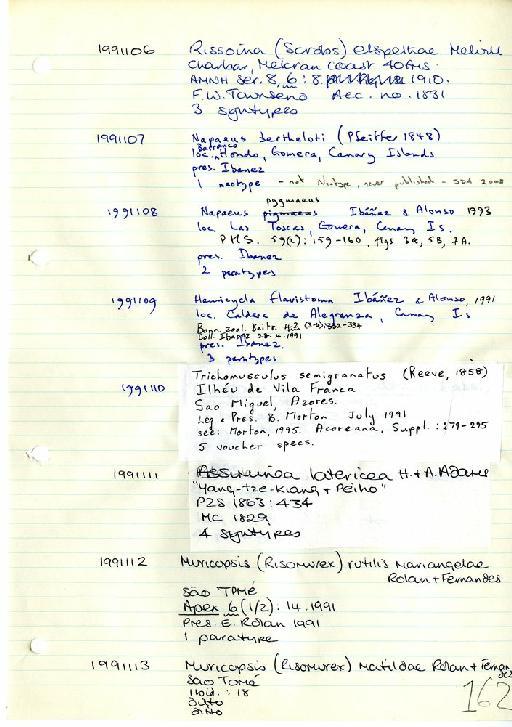 1991106 Rissoina (Scrobs) elspethae Melvill
Charbar, Mekran coast 40 fms.
AMNH Ser. 8, 6: 8. 1910.
F.W. Townsend Acc. no. 1831
3 syntypes
1991107 Napaeus bertheloti (Pfeiffer 1848)
loc. Barranco Hondo, Gomera, Canary Islands
pres. Ibanez
1 neotype - not Neotype, never published - 2008
1991108 Napaeus pygmaeus Ibáñez & Alonso 1993
loc. Las Toscas, Gomera, Canary Is.
59(2): 159-160, figs 3a, 5B, 7A.
pres. Ibanez
2 paratypes
1991109 Hemicycla flavistoma Ibáñez & Alonso, 1991
loc. Caldera de Alegranza, Canary Is
pres. Ibanez.
3 paratypes
1991110 Trichomusculus semigranatus (Reeve, 1858)
Ilhéu de Vila Franca
Sao Miguel, Azores.
Leg & Pres. B. Morton July 1991
see: Morton, 1995. Acoreana, Suppl.: 279-295
5 voucher specs.
1991111 Assiminea latericea H. & A. Adams
"Yang-tze-Kiang & Peiho"
PZS 1863: 434
MC 1829
4 syntypes
1991112 Muricopsis (Risomurex) rutilis mariangelae
Rolan & Fernandes
São Tomé
Apex 6 (1/2): 14. 1991
Pres. E. Rolan 1991
1 paratype
1991113 Muricopsis (Risomurex) matildae Rolan & Fernandes
São Tomé
Ibid.: 18
ditto
ditto
162